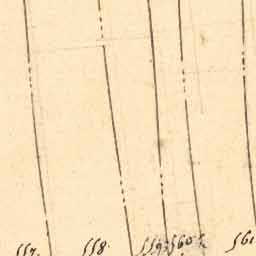 557. 558. 559. 560. 561